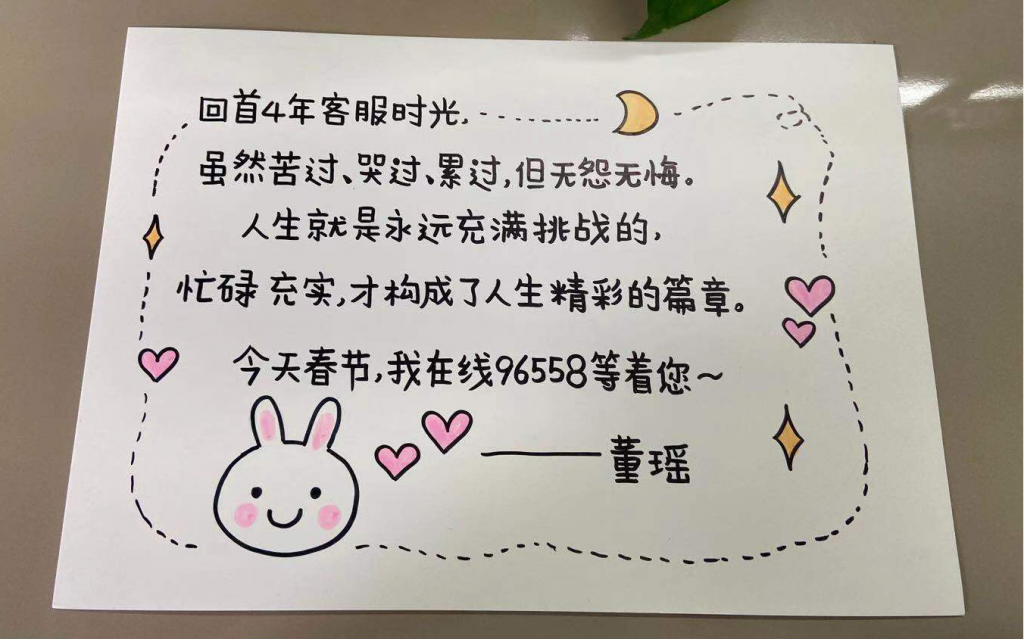 回首4年客服时光,
虽然苦过、哭过、累过,但无怨无悔。
人生就是永远充满挑战的,
忙碌充实,才构成了人生精彩的篇章。
今天春节,我在线96558等着您~
——董瑶